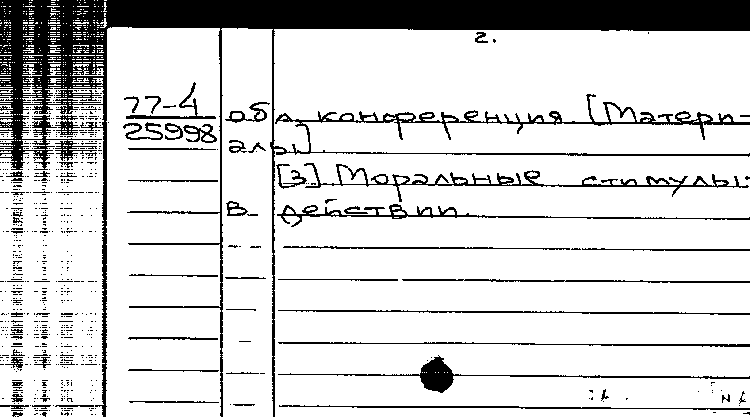 2.
77-4
25998
обл. конференция. [Матери-
алы].
[3] Моральные стимулы-
в действии.